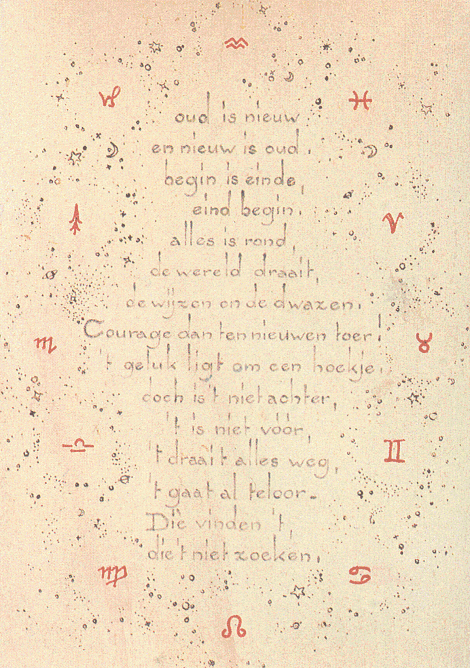 oud is nieuw
en nieuw is oud.
begin is einde,
eind begin.
alles is rond,
de wereld draait,
de wijzen en de dwazen.
Courage dan ten nieuwen toer!
't geluk ligt om een hoekje.
doch is 't niet achter,
't is niet vóór,
't draait alles weg,
't gaat al teloor.
Die vinden 't,
die 't niet zoeken.